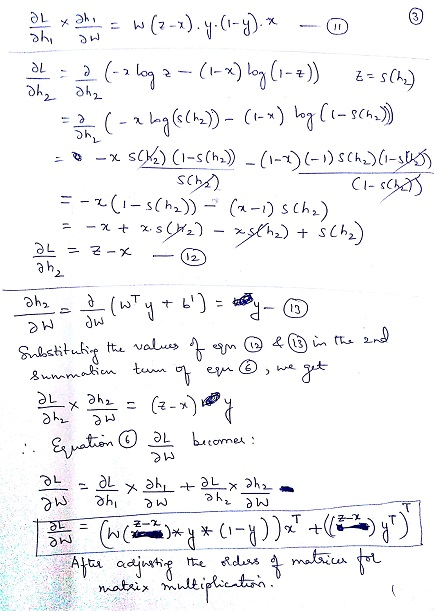 ③
∂L/∂h₁ × ∂h₁/∂W = W(z-x).y.(1-y).x — ⑪
∂L/∂h₂ = ∂/∂h₂ (-x log z - (1-x) log(1-z))   z = s(h₂)
= ∂/∂h₂ (-x log(s(h₂)) - (1-x) log(1-s(h₂)))
= -x s(h₂)(1-s(h₂))/s(h₂) - (1-x)(-1) s(h₂)(1-s(h₂))/(1-s(h₂))
= -x(1-s(h₂)) - (x-1) s(h₂)
= -x + x.s(h₂) - xs(h₂) + s(h₂)
∂L/∂h₂ = z-x — ⑫
∂h₂/∂W = ∂/∂W (Wᵀy + b') = y — ⑬
Substituting the values of eqn ⑫ & ⑬ in the 2nd
summation term of eqn ⑥, we get
∂L/∂h₂ × ∂h₂/∂W = (z-x) y
∴ Equation ⑥ ∂L/∂W becomes:
∂L/∂W = ∂L/∂h₁ × ∂h₁/∂W + ∂L/∂h₂ × ∂h₂/∂W
∂L/∂W = (W(z-x)*y*(1-y))xᵀ + ((z-x)yᵀ)ᵀ
After adjusting the orders of matrices for
matrix multiplication.